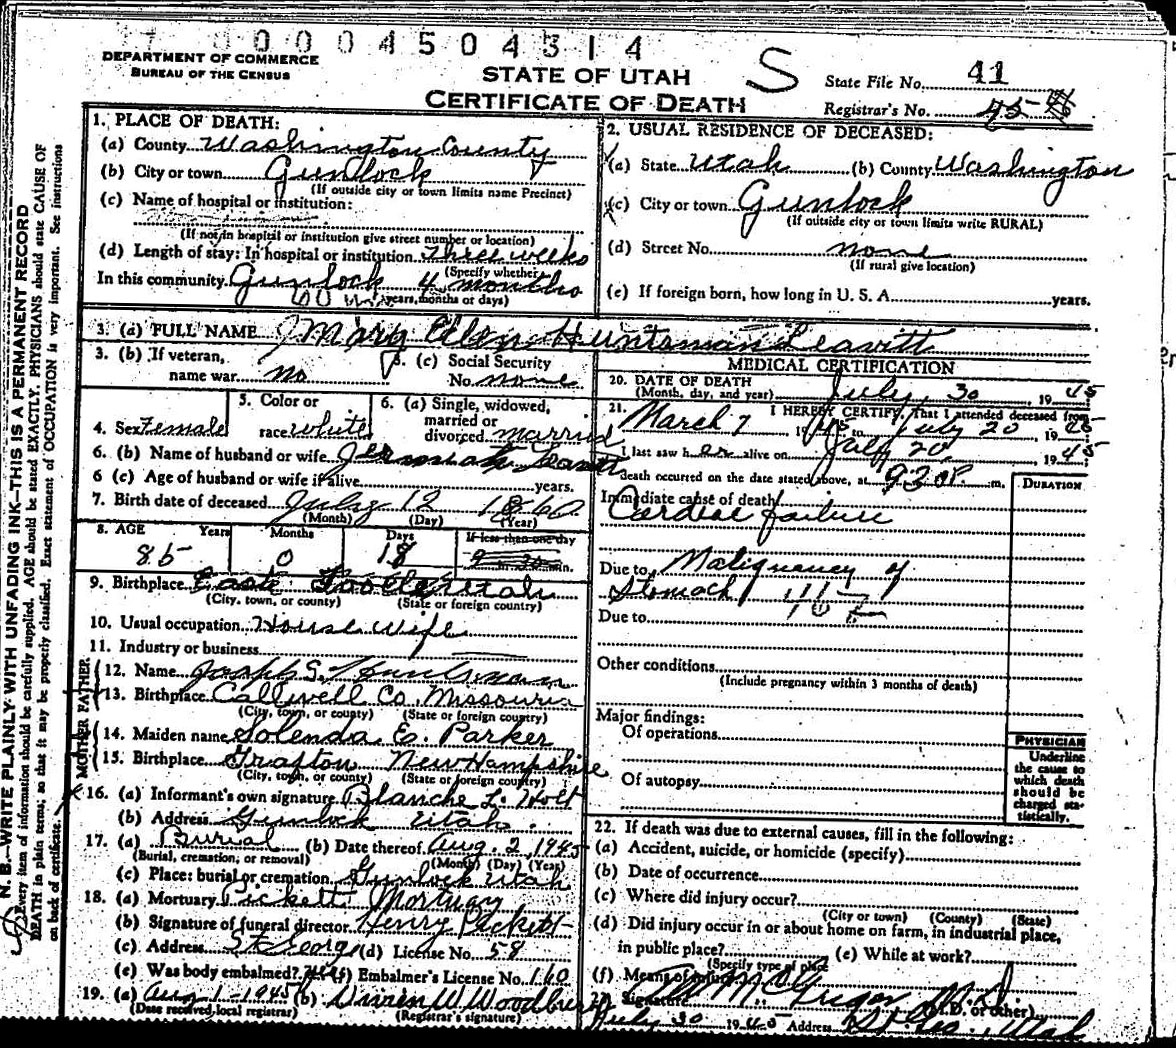 0 0 0 0 4 5 0 4 3 1 4
DEPARTMENT OF COMMERCE
BUREAU OF THE CENSUS
STATE OF UTAH
CERTIFICATE OF DEATH
S
State File No. 41
Registrar's No. 45
N. B.—WRITE PLAINLY WITH UNFADING INK—THIS IS A PERMANENT RECORD
Every item of information should be carefully supplied. AGE should be stated EXACTLY. PHYSICIANS should state CAUSE OF
DEATH in plain terms, so that it may be properly classified. Exact statement of OCCUPATION is very important. See instructions
on back of certificate.
1. PLACE OF DEATH:
(a) County Washington County
(b) City or town Gunlock
(If outside city or town limits name Precinct)
(c) Name of hospital or institution:
(If not in hospital or institution give street number or location)
(d) Length of stay: In hospital or institution Three weeks
(Specify whether
In this community Gunlock 4 months
years, months or days)
2. USUAL RESIDENCE OF DECEASED:
(a) State Utah (b) County Washington
(c) City or town Gunlock
(If outside city or town limits write RURAL)
(d) Street No. none
(If rural give location)
(e) If foreign born, how long in U. S. A. years.
3. (a) FULL NAME Mary Ellen Huntsman Leavitt
3. (b) If veteran,
name war no
3. (c) Social Security
No. none
4. Sex Female
5. Color or
race white
6. (a) Single, widowed,
married or
divorced married
6. (b) Name of husband or wife Jeremiah Leavitt
6 (c) Age of husband or wife if alive years.
7. Birth date of deceased July 12 1860
(Month) (Day) (Year)
8. AGE Years Months Days If less than one day
85 0 18 9 30 min.
9. Birthplace East Tooele Utah
(City, town, or county) (State or foreign country)
10. Usual occupation House Wife
11. Industry or business
FATHER
12. Name Joseph S. Huntsman
13. Birthplace Calliwell Co. Missouri
(City, town, or county) (State or foreign country)
MOTHER
14. Maiden name Solenda E. Parker
15. Birthplace Grafton New Hampshire
(City, town, or county) (State or foreign country)
16. (a) Informant's own signature Blanche L. Holt
(b) Address Gunlock Utah.
17. (a) Burial (b) Date thereof Aug. 2, 1945
(Burial, cremation, or removal) (Month) (Day) (Year)
(c) Place: burial or cremation Gunlock Utah
18. (a) Mortuary Picketts Mortuary
(b) Signature of funeral director Henry Pickett
(c) Address St George (d) License No. 58
(e) Was body embalmed? (f) Embalmer's License No. 160
19. (a) Aug 1-1945 (b) Vivien W. Woodbury
(Date received local registrar) (Registrar's signature)
MEDICAL CERTIFICATION
20. DATE OF DEATH July 30 1945
(Month, day, and year)
21. I HEREBY CERTIFY, That I attended deceased from
March 7 1945 to July 20 1945
I last saw her alive on July 20 1945
death occurred on the date stated above, at 930P. m.
DURATION
Immediate cause of death
Cardiac failure
Due to Malignancy of
Stomach
Due to
Other conditions
(Include pregnancy within 3 months of death)
Major findings:
Of operations
Of autopsy
PHYSICIAN
Underline
the cause to
which death
should be
charged sta-
tistically.
22. If death was due to external causes, fill in the following:
(a) Accident, suicide, or homicide (specify)
(b) Date of occurrence
(c) Where did injury occur?
(City or town) (County) (State)
(d) Did injury occur in or about home on farm, in industrial place,
in public place? (e) While at work?
(Specify type of place
(f) Means of injury
23. Signature McGregor M.D.
(M.D. or other)
July 30 1945 Address St. Geo., Utah